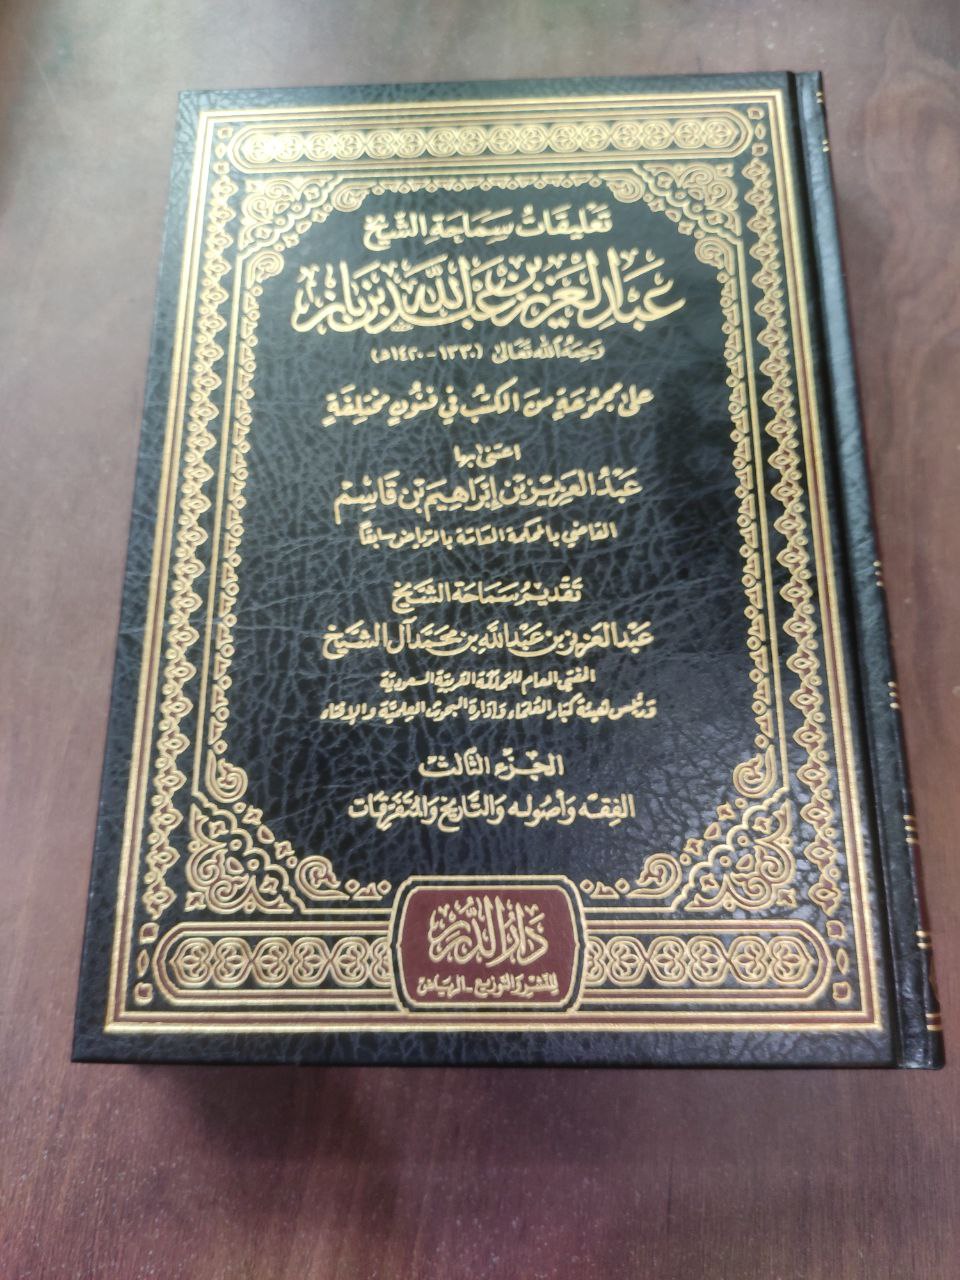 تعليقات سماحة الشيخ
عبد العزيز بن عبد الله بن باز
رحمه الله تعالى (١٣٣٠ - ١٤٢٠هـ)
على مجموعة من الكتب في فنون مختلفة
اعتنى بها
عبد العزيز بن إبراهيم بن قاسم
القاضي بالمحكمة العامة بالرياض سابقاً
تقديم سماحة الشيخ
عبد العزيز بن عبد الله بن محمد آل الشيخ
المفتي العام للمملكة العربية السعودية
ورئيس هيئة كبار العلماء وإدارة البحوث العلمية والإفتاء
الجزء الثالث
الفقه وأصوله والتاريخ والمتفرقات
دار الدرر
للنشر والتوزيع - الرياض